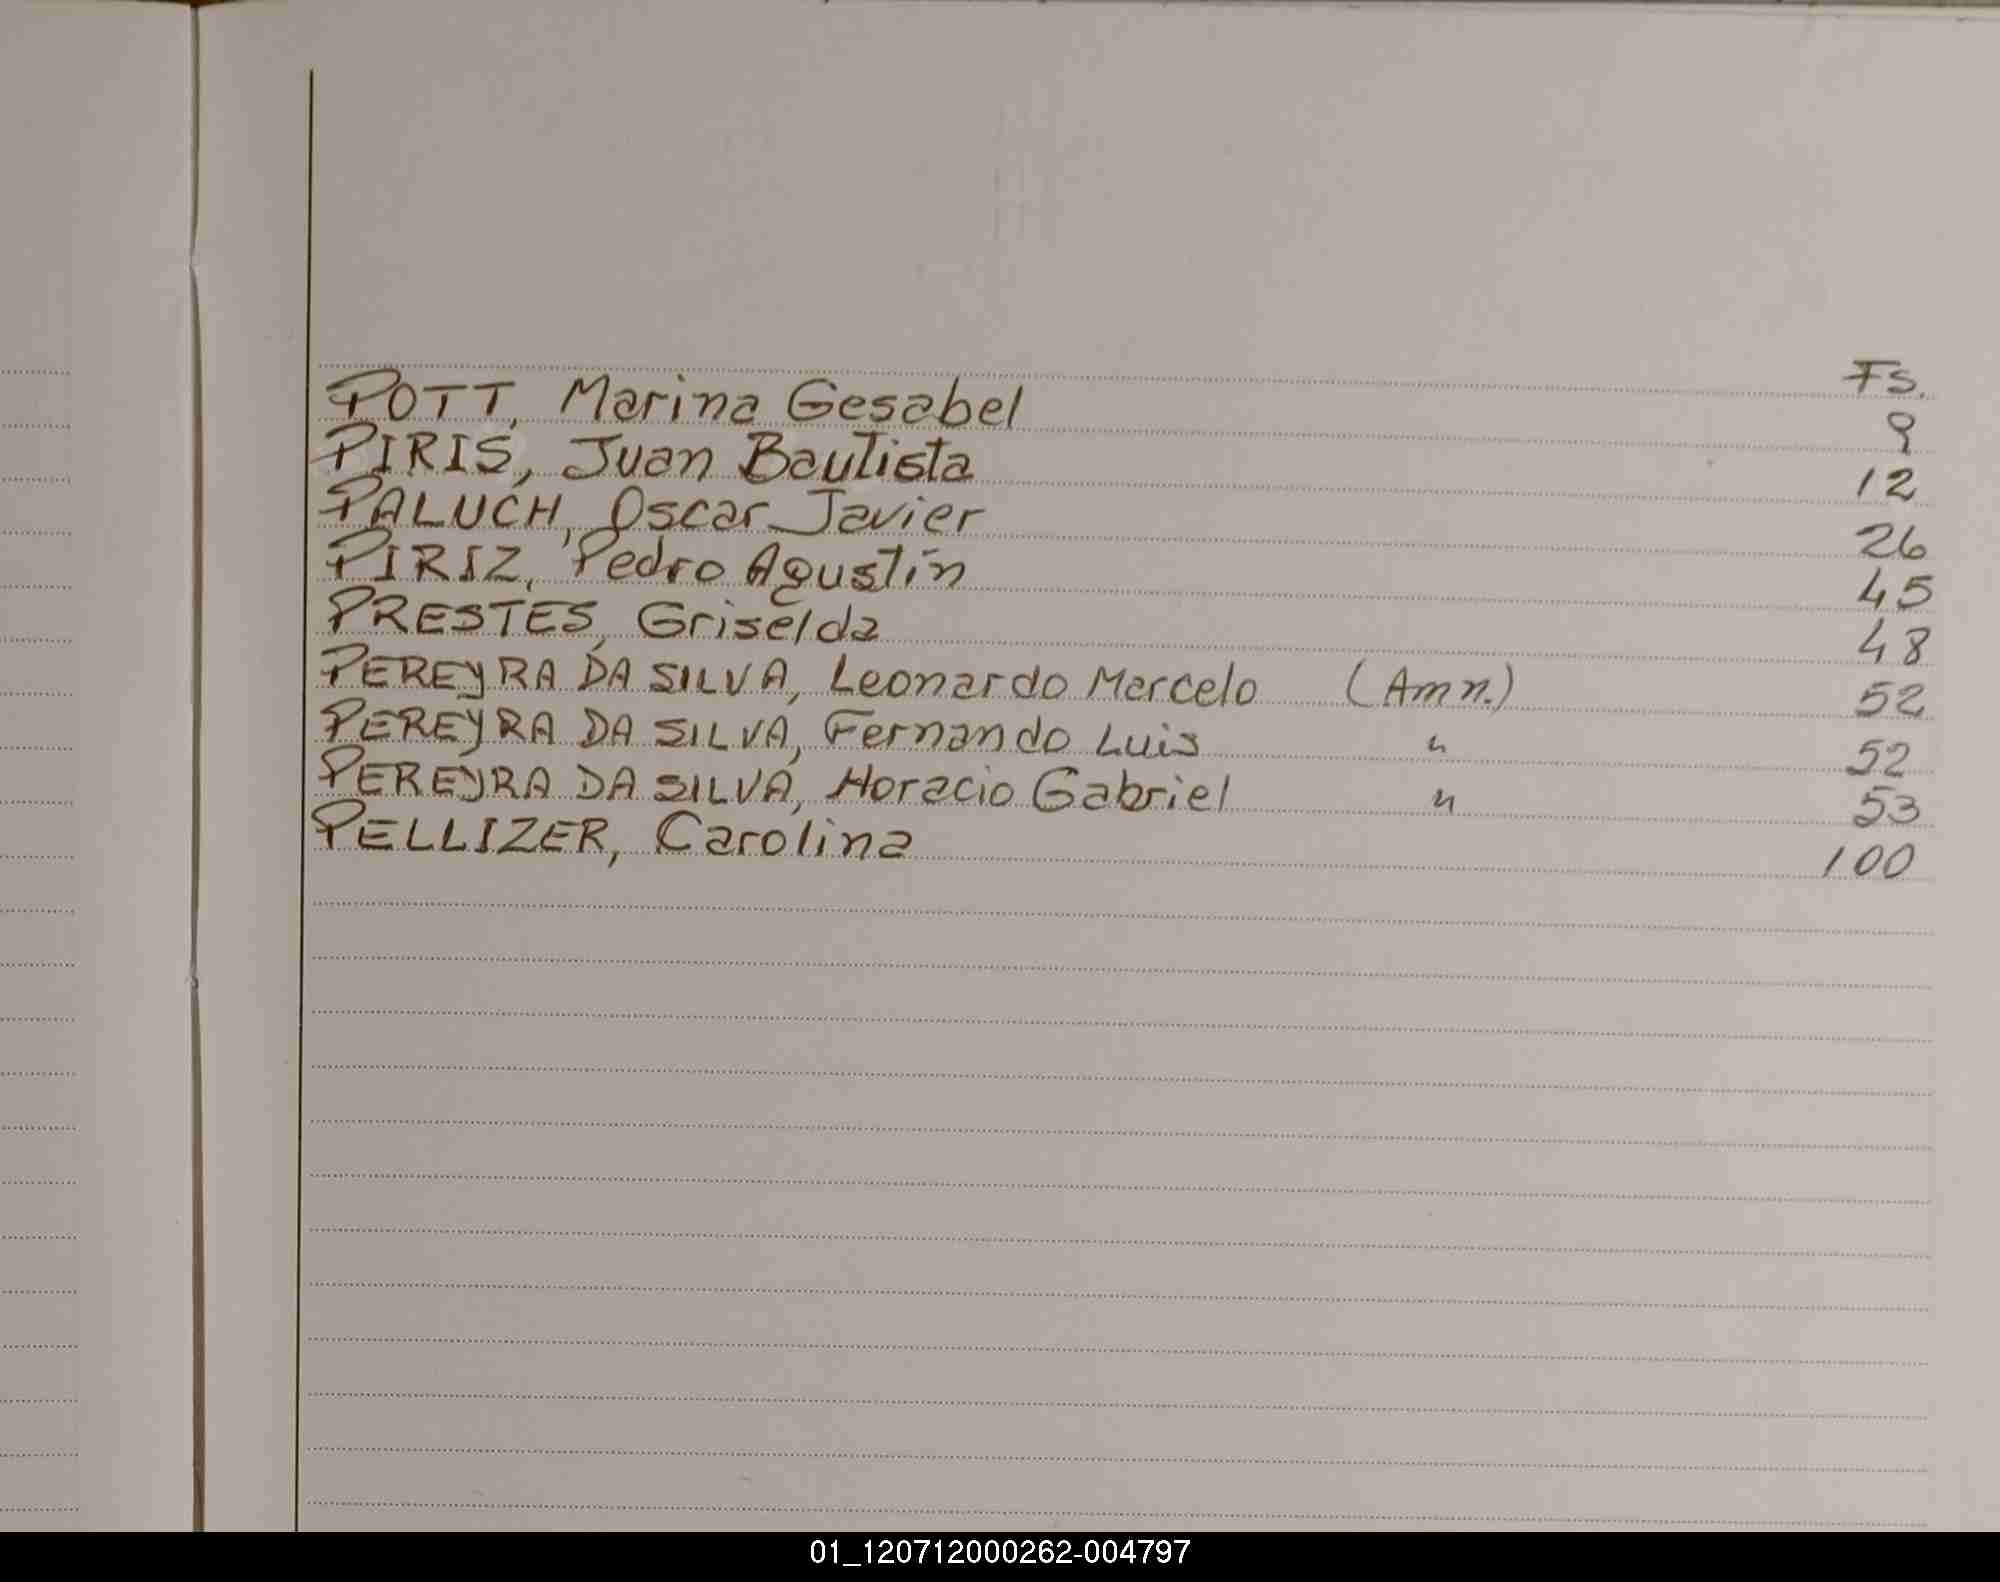 Fs.
POTT, Marina Gesabel 9
PIRIS, Juan Bautista 12
PALUCH, Oscar Javier 26
PIRIZ, Pedro Agustín 45
PRESTES, Griselda 48
PEREYRA DA SILVA, Leonardo Marcelo (Amn.) 52
PEREYRA DA SILVA, Fernando Luis " 52
PEREYRA DA SILVA, Horacio Gabriel " 53
PELLIZER, Carolina 100
01_120712000262-004797